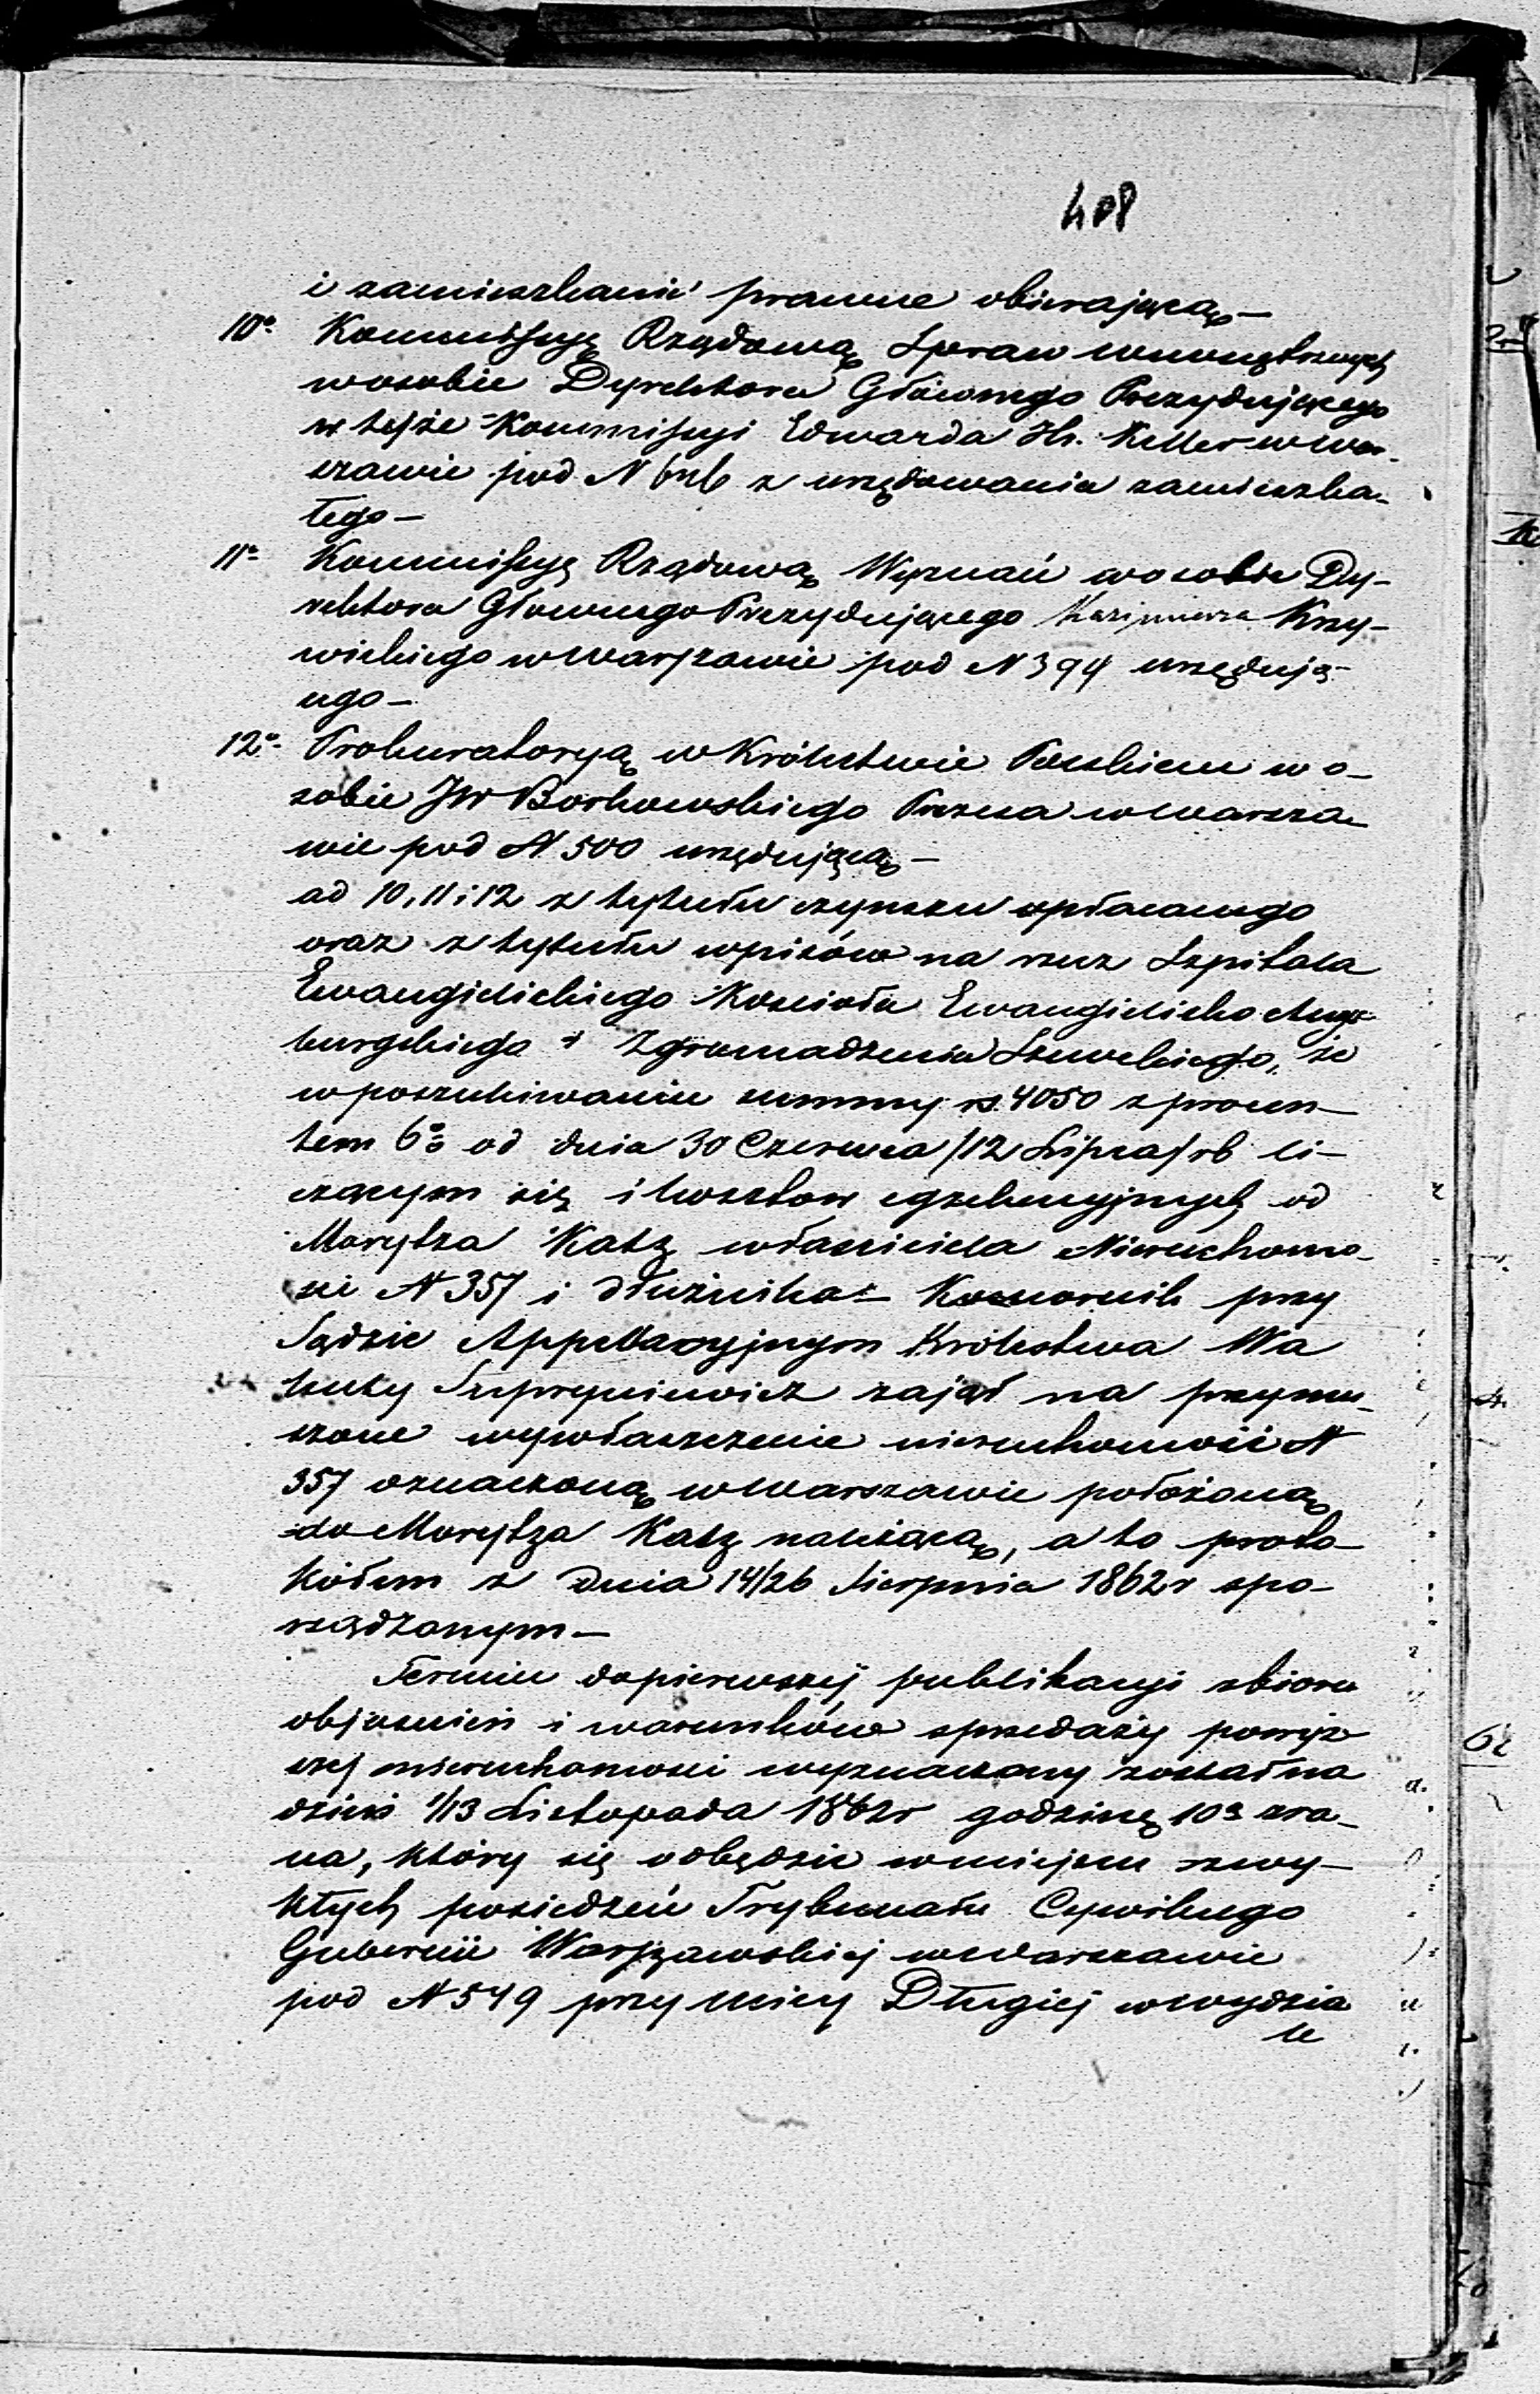 408
i zamieszkanie prawne obierającą —
10o Kommissyę Rządową Spraw Wewnętrznych
w osobie Dyrektora Głównego Prezydującego
w tejże Kommissyi Edwarda Hr. Keller w War-
szawie pod N z urzędowania zamieszka-
łego —
11o Kommissyę Rządową Wyznań w osobie Dy-
rektora Głownego Prezydującego Kazimierza Krzy-
wickiego w Warszawie pod N 394 urzędują-
cego —
12o Prokuratoryą w Królestwie Polskiem w o-
sobie JW Borkowskiego Prezesa w Warsza-
wie pod N 500 urzędującą —
ad 10, 11 i 12 z tytułu czynszu opłacanego
oraz z tytułu wpisów na rzecz Szpitala
Ewangielickiego Kościoła Ewangielicko Augs-
burgskiego i Zgromadzenia Szewckiego, że
w poszukiwaniu summy rs. 4050 z procen-
tem 6% od dnia 30 Czerwca /12 Lipca/ rb li-
czącym się i kosztow egzekucyjnych od
Morytza Katz własciciela Nieruchomo-
sci N 357 i dłużnika — Komornik przy
Sądzie Appellacyjnym Królestwa Wa
kuty zajął na przymu-
szone wywłaszczenie nieruchomość N
357 oznaczoną w Warszawie położoną
do Morytza Katz należącą, a to proto-
kółem z dnia 14/26 Sierpnia 1862 r spo-
rządzonym —
Termin do pierwszej publikacyi zbioru
objasnień i warunków sprzedaży powyż-
szej nieruchomosci wyznaczony został na
dzień 1/13 Listopada 1862 r godzinę 10a zra-
na, który się odbędzie w miejscu zwy-
kłych posiedzeń Trybunału Cywilnego
Gubernii Warszawskiej w Warszawie
pod N 549 przy ulicy Długiej w wydzia
le